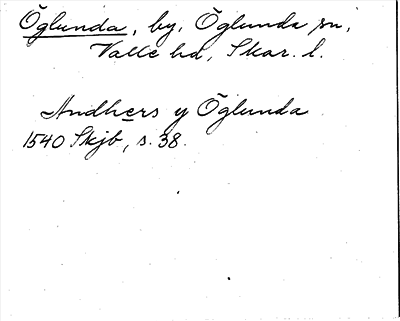 Öglunda, by, Öglunda sn,
Valle hd, Skar. l.
Andhers y Öglunda
1540 Skjb, s. 38.